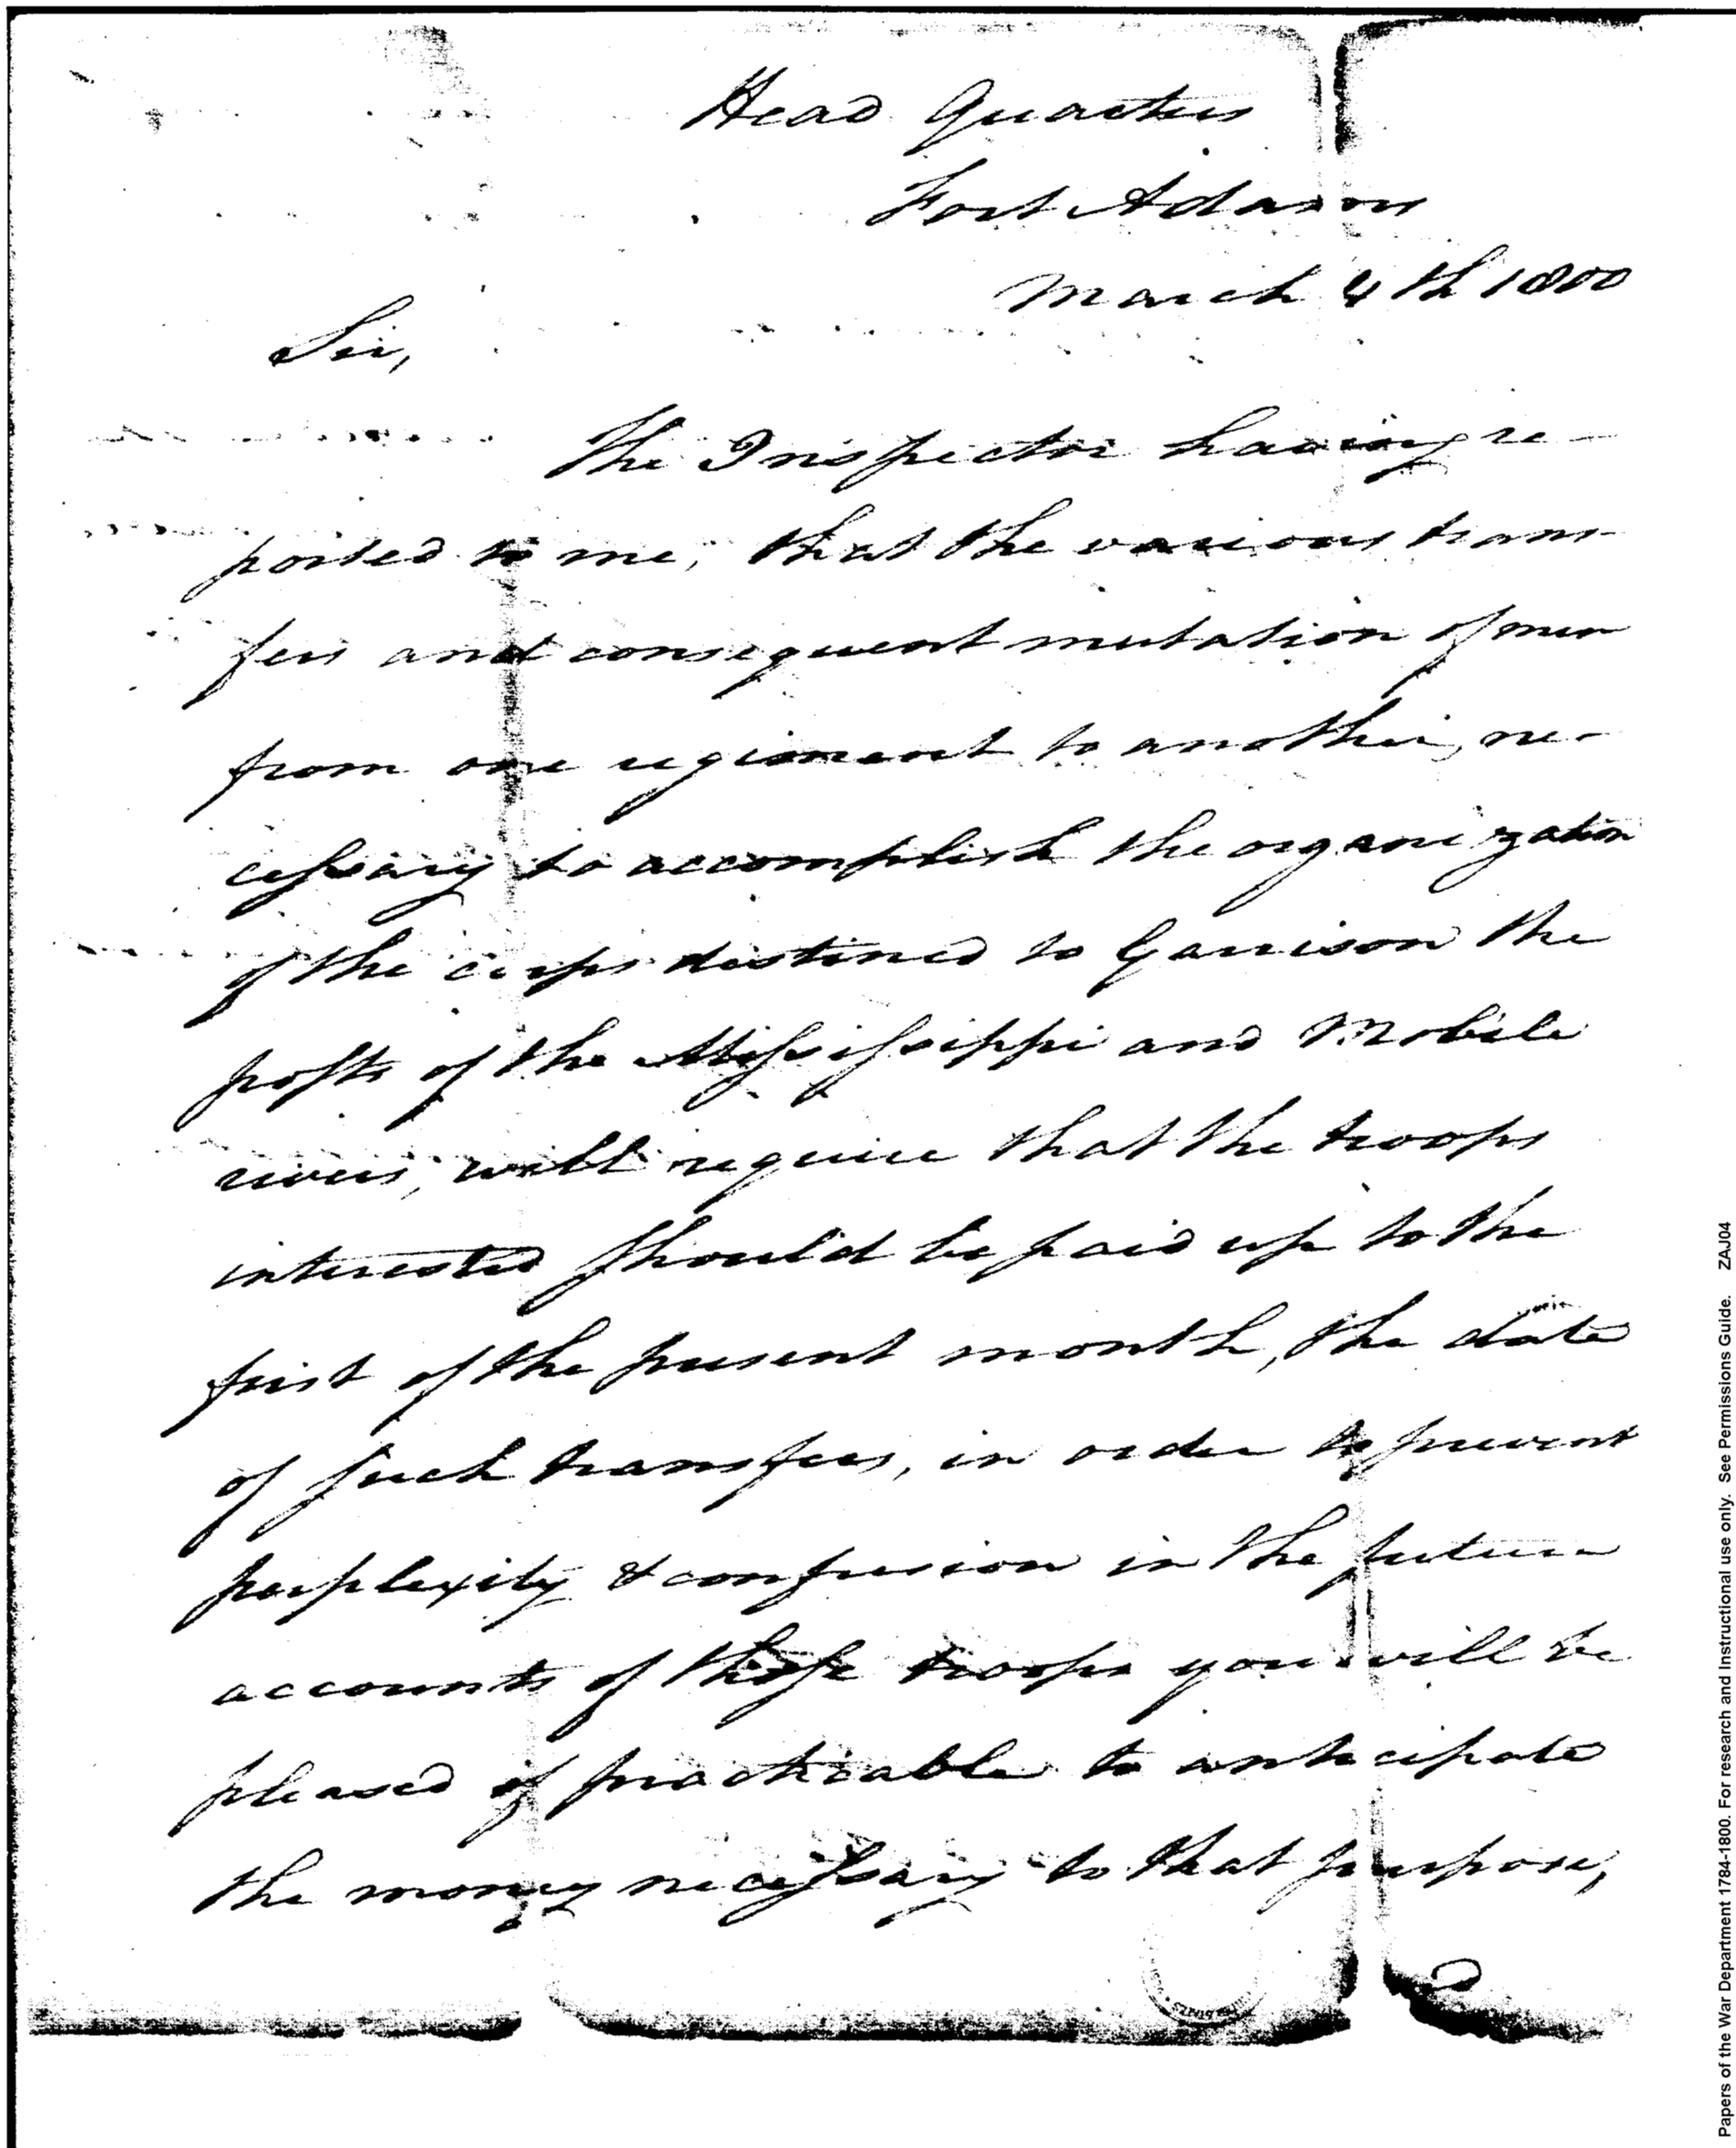 Head Quarters
Fort Adams
March 4th 1800
Sir,
The Inspector having re-
ported to me, that the various trans-
fers and consequent mutation of men
from one regiment to another, ne-
cessary to accomplish the organization
of the corps destined to Garrison the
posts of the Mississippi and Mobile
rivers, will require that the troops
interested should be paid up to the
first of the present month, the date
of such transfers, in order to prevent
perplexity & confusion in the future
accounts of those troops you will be
pleased if practicable to anticipate
the money necessary to that purpose,
Papers of the War Department 1784-1800. For research and Instructional use only. See Permissions Guide. ZAJ04